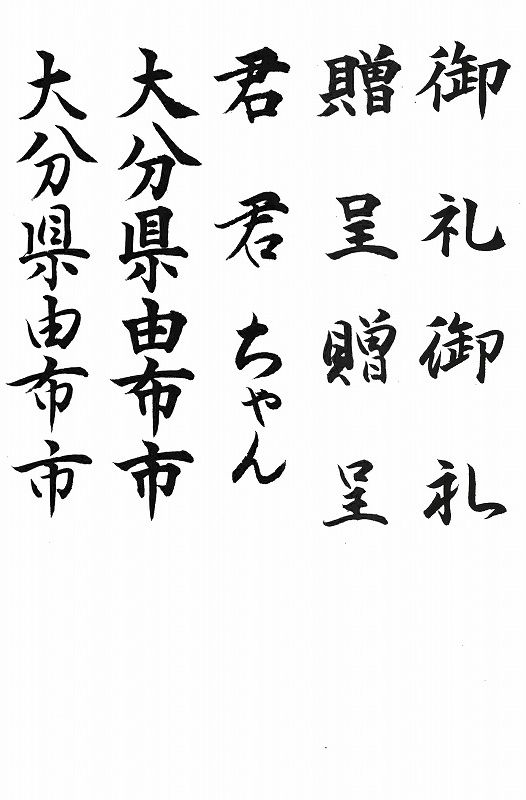 御礼御礼
贈呈贈呈
君君ちゃん
大分県由布市
大分県由布市